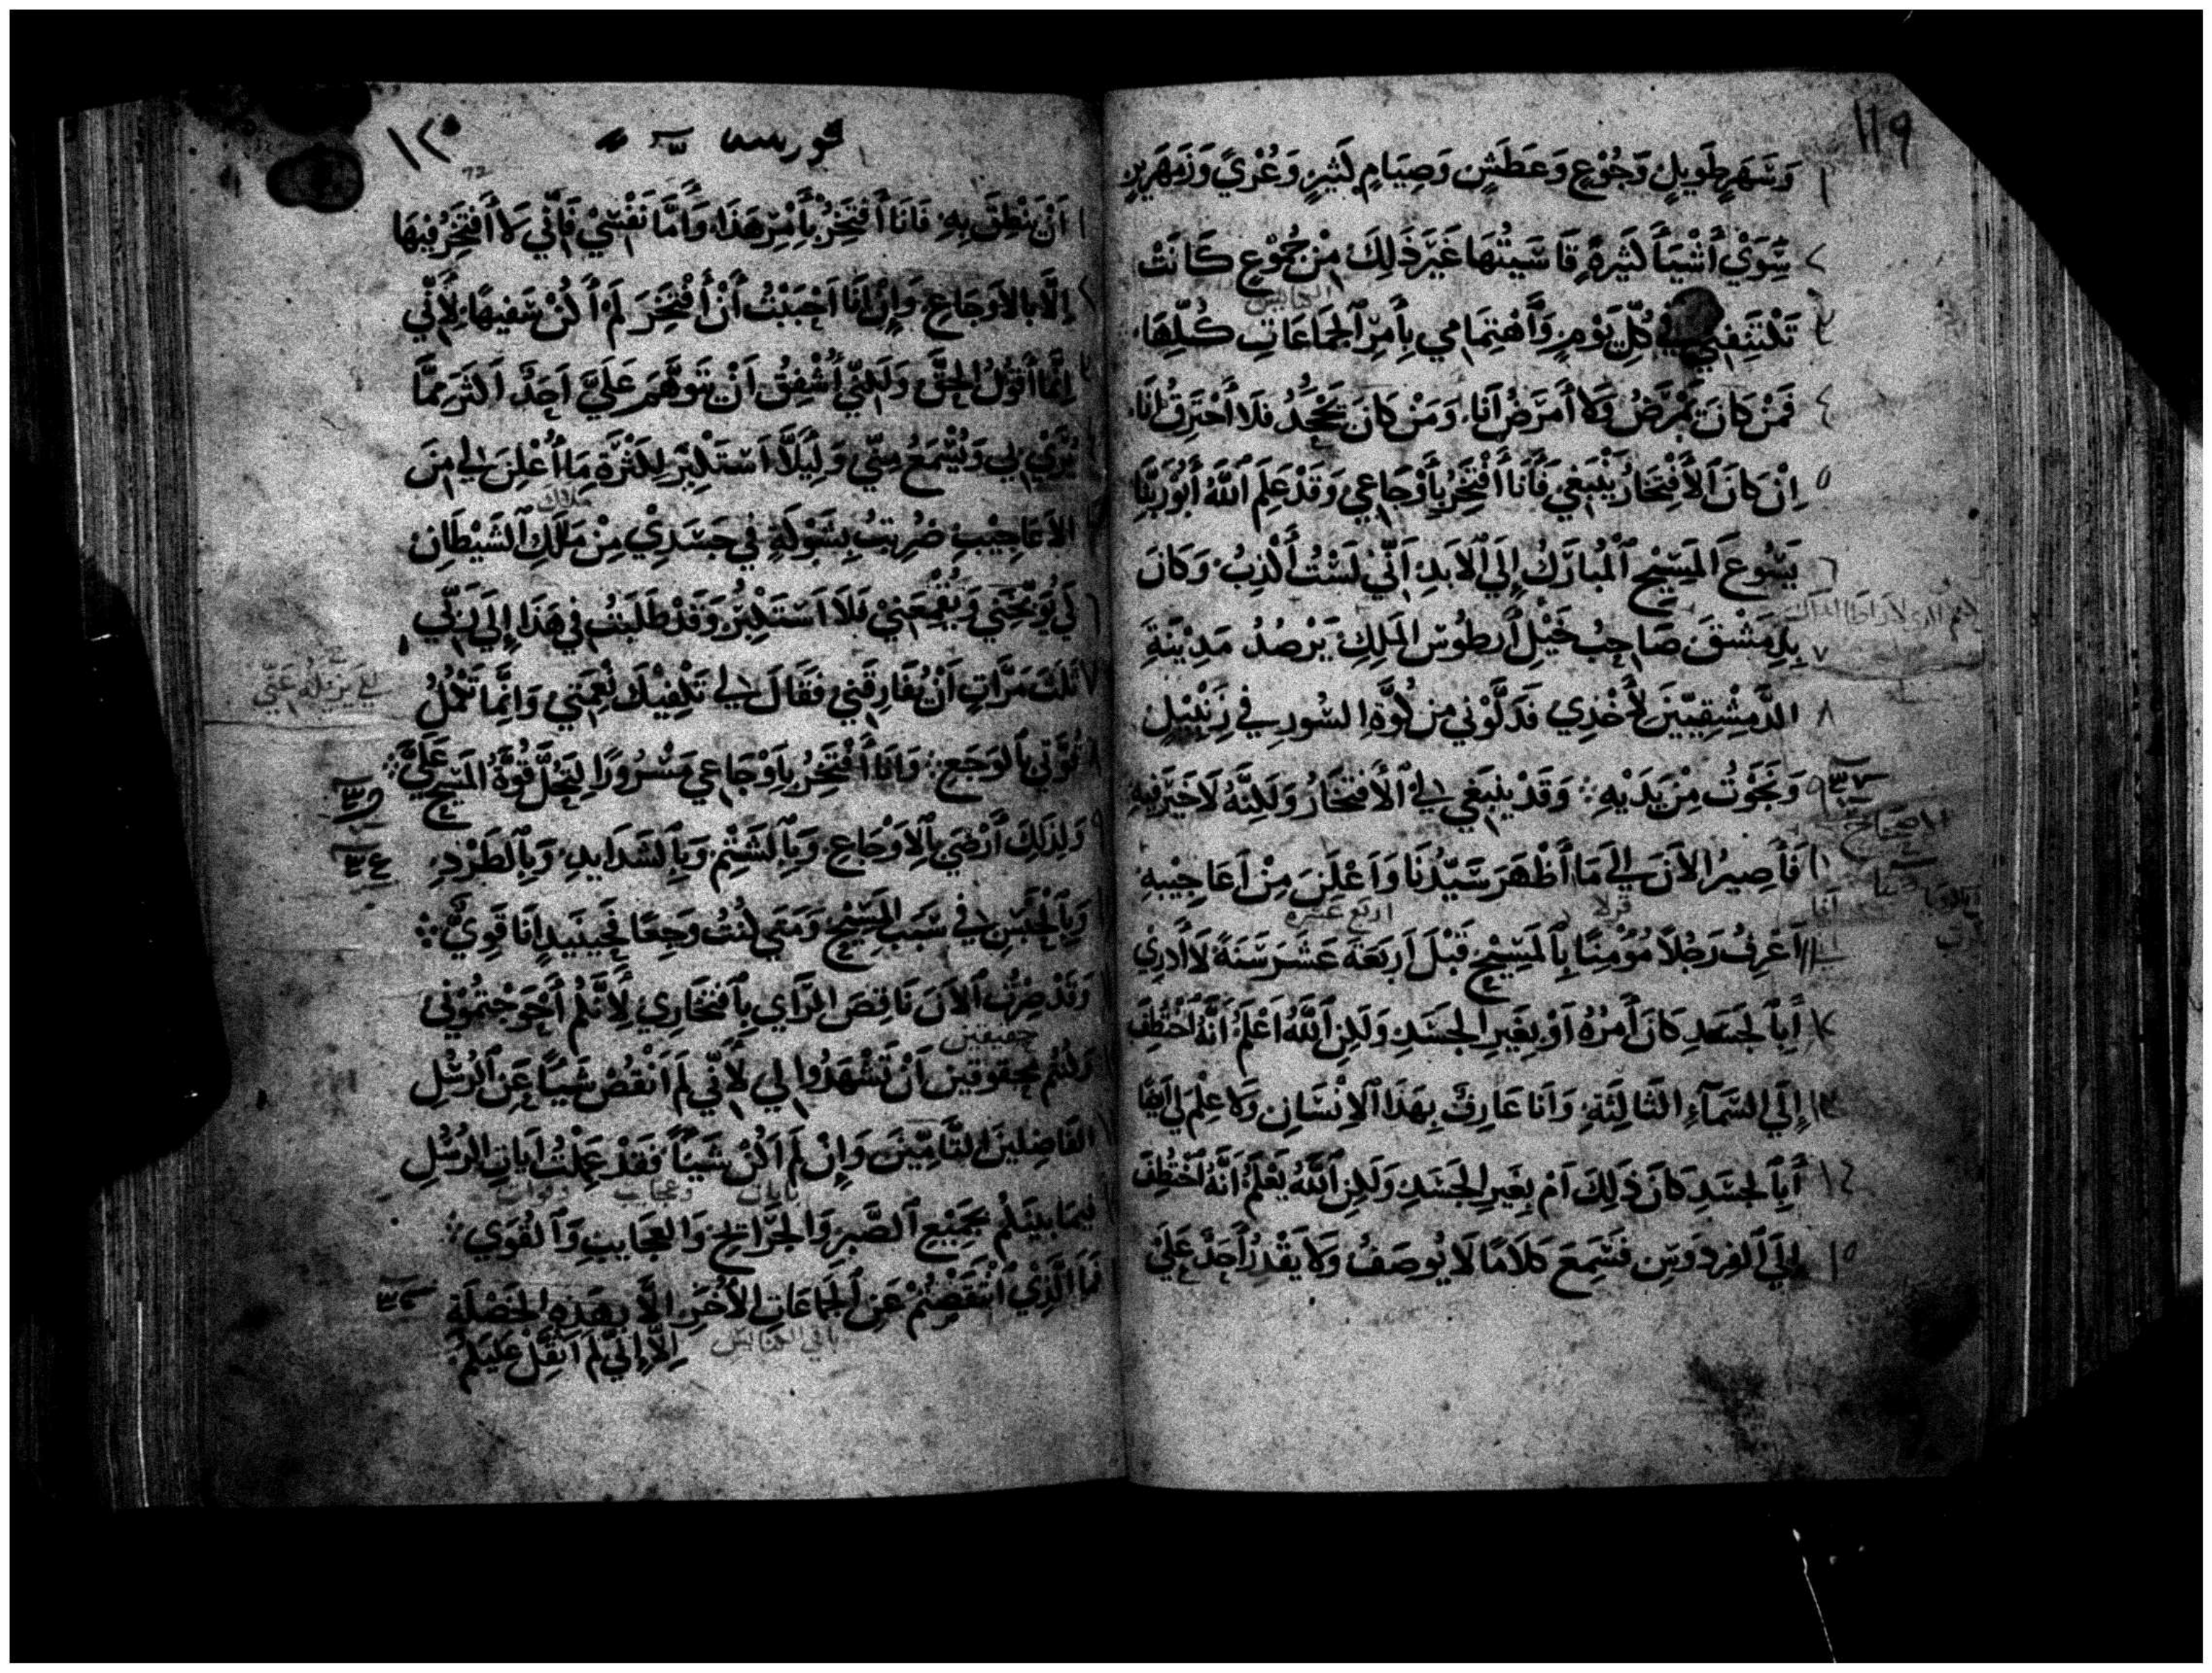 ١١٩
١ وَسَهَرٍ طَوِيلٍ وَجُوْعٍ وَعَطَشٍ وَصِيَامٍ كَثِيرٍ وَعُرْيٍ وَزَمْهَرِيرٍ
٢ سِوَيْ أَشْيَآ كَثِيرَةٍ قَاسَيْتُهَا غَيْرَ ذَلِكَ مِنْ جُمُوْعٍ كَانَتْ
٣ تَكْتَنِفُنِي فِي كُلِّ يَوْمٍ وَاهْتِمَامِي بِأَمْرِ الْجَمَاعَاتِ كُلِّهَا
٤ فَمَنْ كَانَ يَمْرَضُ وَلَا أَمْرَضُ أَنَا وَمَنْ كَانَ يَجْحَدُ فَلَا أَحْتَرِقُ أَنَا
٥ اِنْ كَانَ الْأِفْتِخَارُ يَنْبَغِي فَأَنَا أَفْتَخِرُ بِأَوْجَاعِي وَقَدْ عَلِمَ اللَّهُ أَبُو رَبِّنَا
٦ يَسُوعَ الْمَسِيْحِ الْمُبَارَكُ إِلَي الْاَبَدِ اَنِّي لَسْتُ أَكْذِبُ وَكَانَ
٧ بِدِمَشْقَ صَاحِبُ خَيْلِ أَرطُوس الْمَلِكِ يَرْصُدُ مَدِيْنَةَ
٨ الدَّمِشْقِيِّينَ لِأَخْذِي فَدَلَّوْنِي مِن كُوَّةِ السُورِ فِي زَنْبِيْلٍ
٩ وَنَجَوْتُ مِنْ يَدَيْهِ وَقَدْ يَنْبَغِي لِي الْأِفْتِخَارُ وَلَكِنَّهُ لَا خَيْرَ فِيهِ
الاصحاح
١٠ فَأَصِيرُ الاَنَ إِلَي مَا أَظْهَرَ سَيِّدُنَا وَاَعْلَنَ مِنْ اَعَاجِيْبِهِ
اربع عشره
١١ اَعْرِفُ رَجُلاً مُوْمِنًا بِالْمَسِيْحِ قَبْلَ اَرْبَعَةَ عَشَرَ سَنَةً لَا أَدرِي
١٢ أَبِالْجَسَدِ كَانَ أَمْرُهُ اَوْ بِغَيرِ الْجَسَدِ وَلَكِنِ اللَّهُ اَعْلَمُ اَنَّهُ اخْتُطِفَ
١٣ إِلَي السَّمَآءِ الثَّالِثَةِ وَاَنَا عَارِفٌ بِهَذَا الْاِنْسَانِ وَلَا عِلْمَ لِي اَيْضًا
١٤ أَبِالْجسَدِ كَانَ ذَلِكَ اَمْ بِغَيرِ الْجَسَدِ وَلَكِنِ اللَّهُ يَعْلَمُ اَنَّهُ اخْتُطِفَ
١٥ إِلَي الفِردَوسِ فَسَمِعَ كَلَامًا لَا يُوصَفُ وَلَا يَقْدِرُ أَحَدٌ عَلَيْ
١٢٠
72
قورىىىه
١ اَنْ يَنْطِقَ بِهِ فَاَنَا أَفْتَخِرُ بِأَمْرِ هَذَا وَأَمَّا نَفْسِيْ فَإِنِّي لَا أَفْتَخِرُ فِيْهَا
٢ اِلَّا بِالاَوجَاعِ وَإِنْ اَنَا اَحْبَبْتُ أَنْ أَفْتَخِرَ لَمْ أَكُنْ سَفِيهًا لِأَنِّي
٣ اِنَّمَا أَقُوْلُ الحَقَّ وَلَكِنِّي أُشْفِقُ اَنْ يَتَوَهَّمَ عَلَيَّ اَحَدٌ اَكْثَرَ مِمَّا
يُرَيْ بِي وَيُسْمَعُ مِنِّي وَلِيَلَّا اَسْتَكْبِرَ لِكَثْرَةِ مَا أُعْلِنَ لِي مِنَ
ملاك
الاَعَاجِيْبِ ضُرِبْتُ بِشَوْكَةٍ فِي جَسَدِيْ مِنْ مَلَكِ الشَيْطَانِ
٦ لِكَي يُوَبِّخَنِي وَيُقْمِعَنِيْ فَلَا اَسْتَكْبِرُ وَقَدْ طَلَبْتُ فِي هَذَا إِلَي رَبِّي
٧ ثَلَثَ مَرَّاتٍ اَنْ يُفَارِقَنِي فَقَالَ لِي تَكْفِيْكَ نِعْمَتِي وَاِنَّمَا تَكْمُلُ
لِكَي يُزيلهُ عَنِّي
٨ قُوَّتِي بِالْوَجَعِ وَاَنَا أَفْتَخِرُ بِاَوْجَاعِي مَسْرُورًا لِتَحُلَّ قُوَّةُ الْمَسِيْحِ عَلَيَّ
٩ وَلِذَلِكَ أَرْضَي بِالْاَوْجَاعِ وَبِالشَتْمِ وَبِالشَدَايِدِ وَبِالطَرْدِ
وَبِالْحَبْسِ فِي سَبَبِ الْمَسِيْحِ وَمَتَي كُنْتُ وَجِعًا فَحِينَيِدٍ اَنَا قَوِيٌّ
وَقَدْ صِرْتُ الْاَنَ نَاقِصَ الرَّاي بِافْتِخَارِي لِأَنَّكُمْ أَحْوَجْتُمُوْنِي
حقيقين
وَكُنْتُم مَحْقُوقِينَ اَنْ تَشْهَدُوا لِي لِأَنِّي لَمْ اَنْقُصْ شَيْاً عَنِ الرُّسُلِ
الفَاضِلِينَ التَّامِّيْنَ وَإِنْ لَمْ اَكُنْ شَيْاً فَقَدْ عَمِلْتُ ايَاتِ الرُسُلِ
بايات وعجايب وقوات
فِيمَا بَيْنَكُمْ بِجَمِيْعِ الصَّبْرِ وَالجَرَايِحِ وَالعَجَايِبِ وَالقُوَي
فَمَا الَّذِيْ انْتَقَصْتُمْ عَنِ الجَمَاعَاتِ الْأُخَرِ اِلَّا بِهَذِهِ الخَصْلَةِ
باقي الكنايس
اِلَّا إِنِّي لَمْ اَثْقُلْ عَلَيْكُمْ